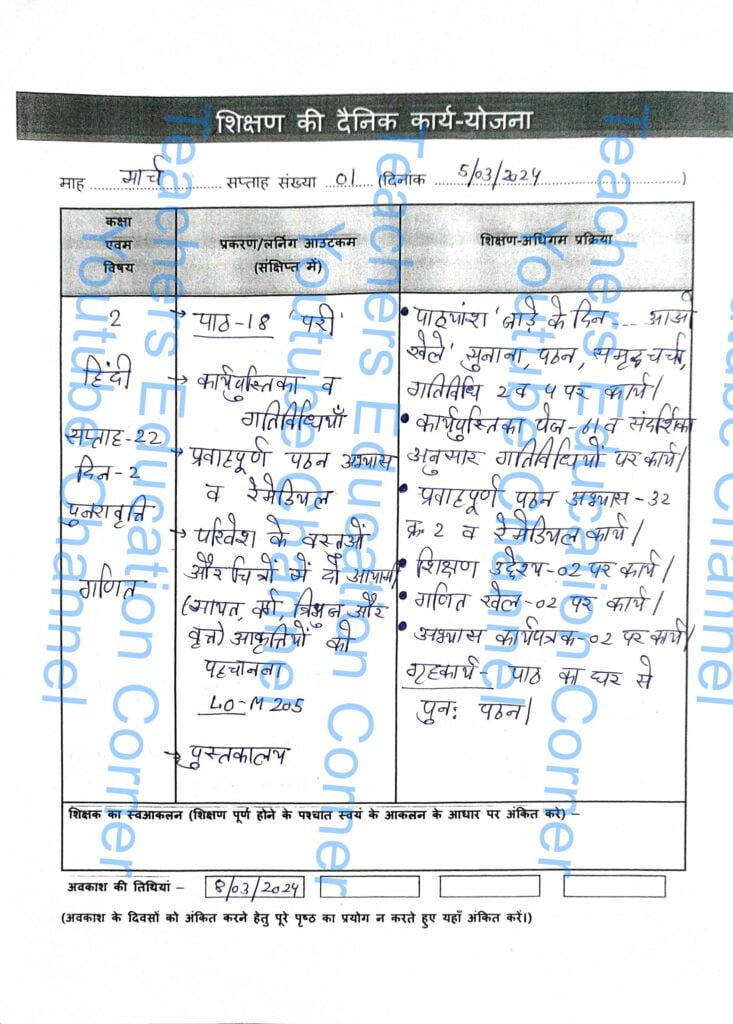 शिक्षण की दैनिक कार्य-योजना
माह मार्च सप्ताह संख्या 01 (दिनांक 5/03/2024)
कक्षा
एवम
विषय
प्रकरण/लर्निंग आउटकम
(संक्षिप्त में)
शिक्षण-अधिगम प्रक्रिया
2
हिंदी
सप्ताह-22
दिन-2
पुनरावृत्ति
गणित
→ पाठ-18 'परी'
→ कार्यपुस्तिका व
गतिविधियाँ
→ प्रवाहपूर्ण पठन अभ्यास
व रेमेडियल
→ परिवेश के वस्तुओं
और चित्रों में दो आयामी
(आयत, वर्ग, त्रिभुज और
वृत्त) आकृतियों को
पहचानना
LO-M 205
→ पुस्तकालय
• पाठ्यांश 'जाड़े के दिन... आओ
खेलें' सुनाना, पठन, समूह चर्चा,
गतिविधि 2 व 4 पर कार्य।
• कार्यपुस्तिका पेज-61 व संदर्शिका
अनुसार गतिविधियों पर कार्य।
• प्रवाहपूर्ण पठन अभ्यास-32
क्र. 2 व रेमेडियल कार्य।
• शिक्षण उद्देश्य-02 पर कार्य।
• गणित खेल-02 पर कार्य।
• अभ्यास कार्यपत्रक-02 पर कार्य।
गृहकार्य- पाठ का घर से
पुनः पठन।
शिक्षक का स्वआकलन (शिक्षण पूर्ण होने के पश्चात स्वयं के आकलन के आधार पर अंकित करें) –
अवकाश की तिथियां – 8/03/2024
(अवकाश के दिवसों को अंकित करने हेतु पूरे पृष्ठ का प्रयोग न करते हुए यहाँ अंकित करें।)
Teachers Education Corner
Youtube Channel
Teachers Education Corner
Youtube Channel
Teachers Education Corner
Youtube Channel